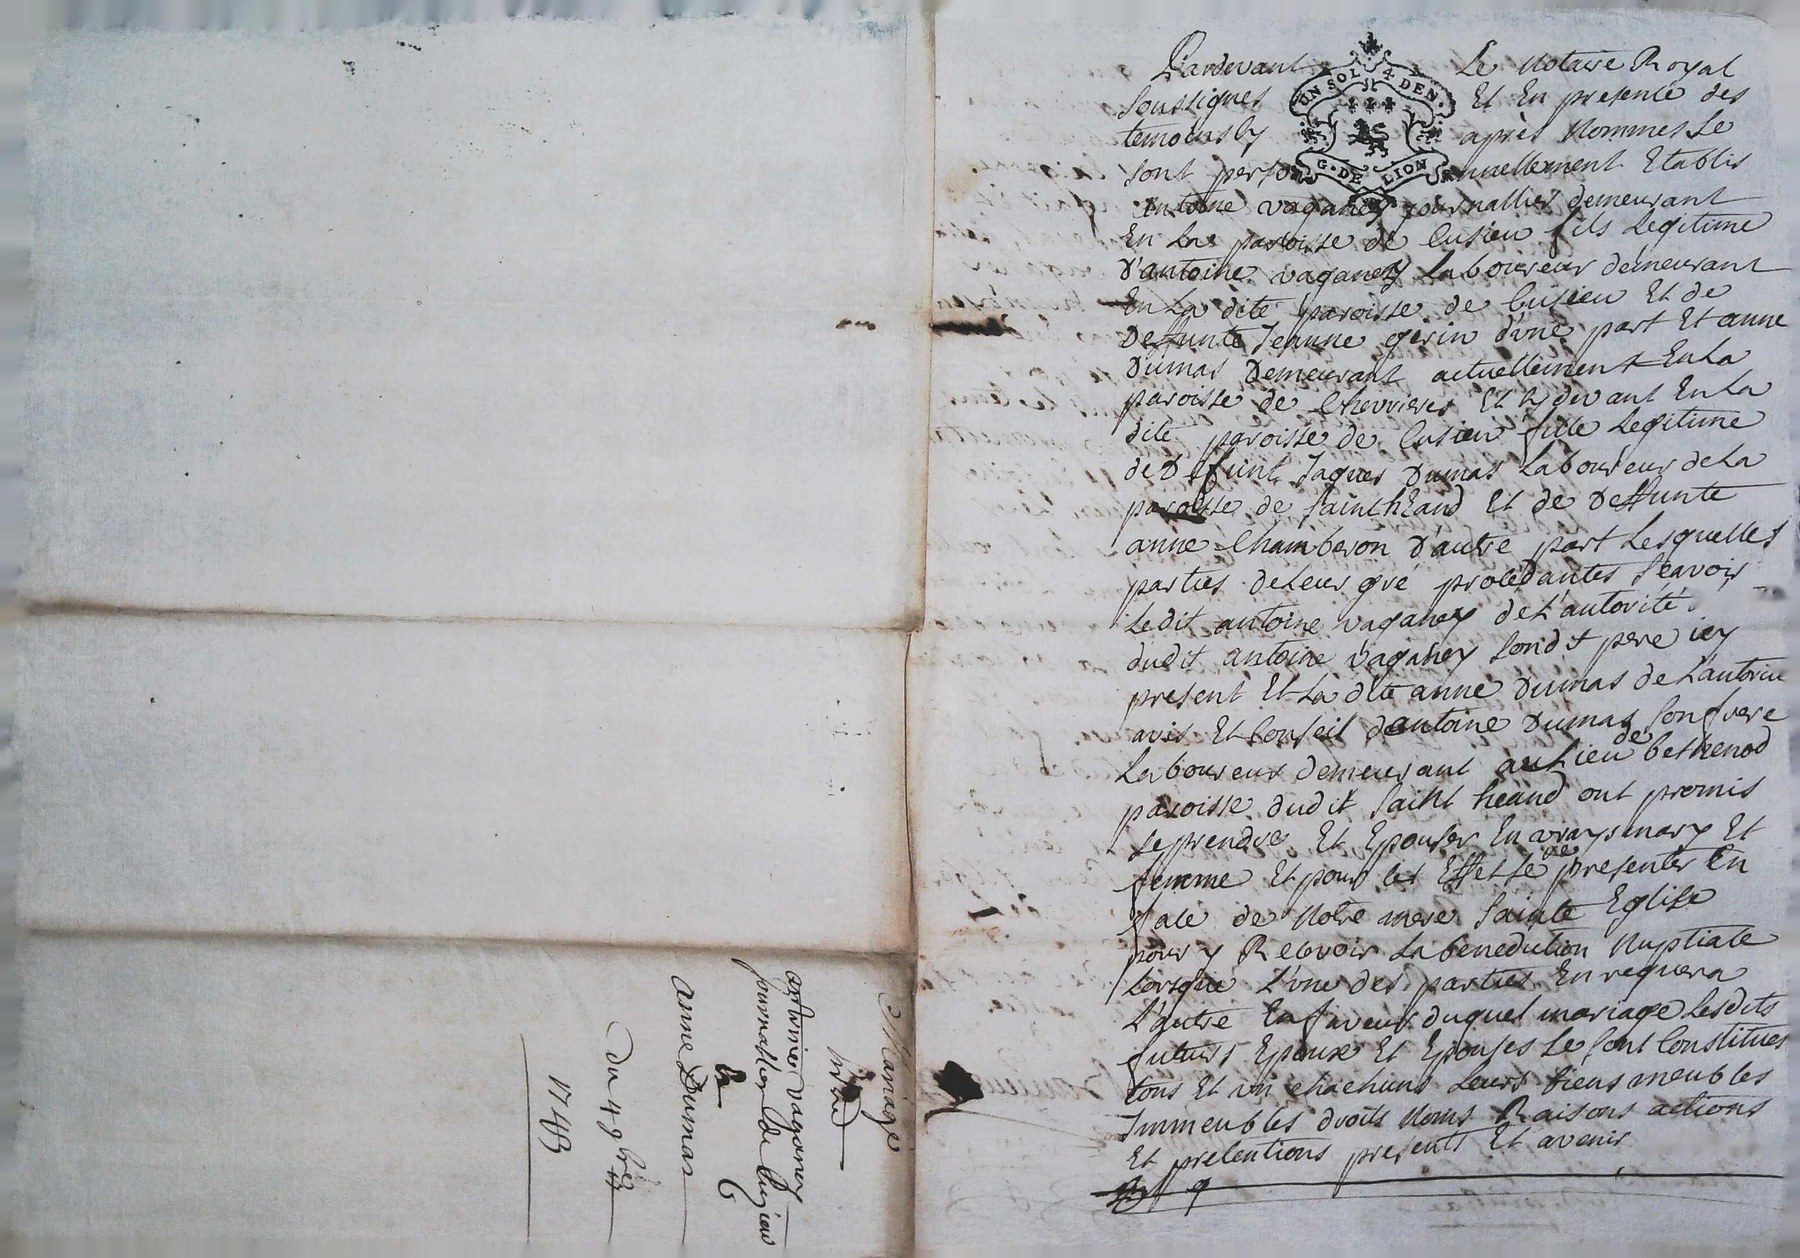 Mariage
entre
antoine vaganey
journallier de Cuzieu
Et
anne Dumas
Du 4 9bre
1743
Pardevant Le Notaire Royal
soussignes Et En presence des
temoins Cy après Nommes se
sont personnellement Etablis
antoine vaganey journallier demeurant
En La paroisse de Cusieu fils Legitime
D'antoine vaganey Laboureur demeurant
En La dite paroisse de Cusieu Et de
Deffunte Jeanne gerin d'une part Et anne
Dumas Demeurant actuellement En La
paroisse de Chevrieres Et Cy devant En La
dite paroisse de Cusieu fille Legitime
de Deffunt Jaques Dumas Laboureur de La
paroisse de saint hEand Et de Deffunte
anne Chamberon D'autre part Lesquelles
parties de Leur gré procedantes sçavoir
Ledit antoine vaganey de L'autorité
dudit antoine vaganey sondit pere icy
present Et La dite anne Dumas de Lautorité
avis Et Conseil dantoine Dumas son frere
Laboureur demeurant au Lieu de bethenod
paroisse dudit saint heand ont promis
se prendre Et Epouser En vrays mary Et
femme Et pour Cet Effet se presenter En
face de Notre mere sainte Eglise
pour y Recevoir La benediction Nuptiale
Lorsque L'une des parties En requera
L'autre En faveur duquel mariage Lesdits
futurs Epoux Et Epouses se sont Constitues
tous Et un chachuns Leurs biens meubles
Immeubles droits Noms Raisons actions
Et pretentions presents Et avenir
UN SOL 4 DEN.
G. DE LION